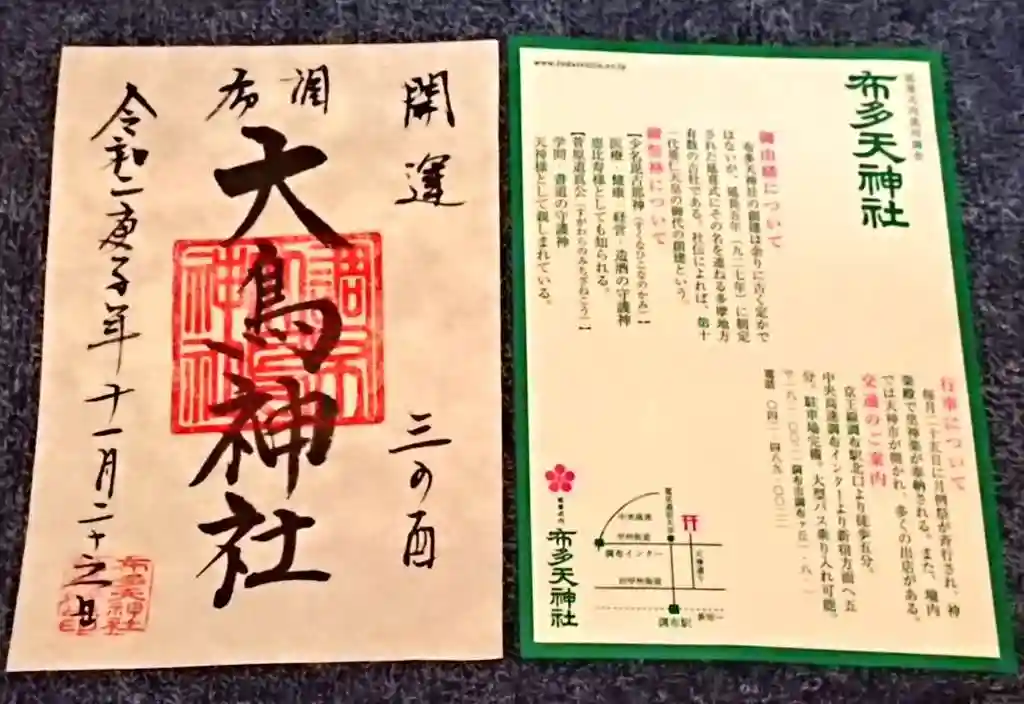 開運 三の酉
調布
大鳥神社
令和二庚子年十一月二十六日
調布
神社
布多天神社
www.fudatenjin.or.jp
布多天神社
御由緒について
布多天神社の創建は余りに古く定かで
はないが、延長五年（九二七年）に制定
された延喜式にその名を連ねる多摩地方
有数の古社である。社伝によれば、第十
一代垂仁天皇の御代の創建という。
御祭神について
【少名毘古那神（すくなひこなのかみ）】
医療・健康・経営・造酒の守護神
恵比寿様としても知られる。
【菅原道真公（すがわらのみちざねこう）】
学問・書道の守護神
天神様として親しまれている。
行事について
毎月二十五日に月例祭が斉行され、神
楽殿で里神楽が奉納される。また、境内
では天神市が開かれ、多くの出店がある。
交通のご案内
京王線調布駅北口より徒歩五分。
中央高速調布インターより新宿方面へ五
分。駐車場完備。大型バス乗り入れ可能。
〒一八二-〇〇二二 調布市調布ヶ丘一-八-一
電話 〇四二-四八九-〇〇二二
布多天神社
中央高速
甲州街道
調布インター
旧甲州街道
電気通信大学
天神通り
調布駅
新宿→